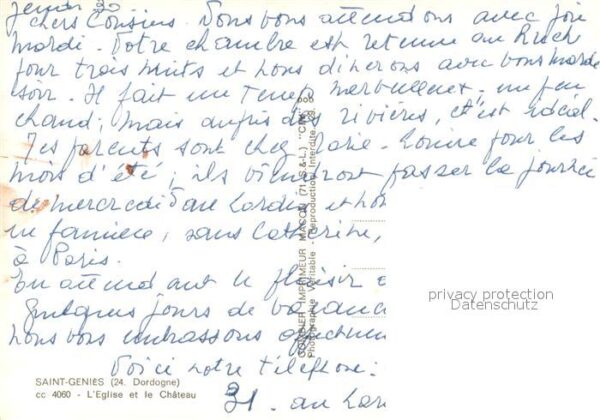 Jeudi 30
Chers Cousins. Nous vous attendons avec joie
mardi. Votre chambre est retenue au Ruch
pour trois nuits et nous dinerons avec vous mardi
soir. Il fait un temps merveilleux, un peu
chaud; mais auprès des rivières, c'est idéal.
Tes parents sont chez Marie-Louise pour les
mois d'été; ils viendront passer la journée
de mercredi au Lardin et nou
en famille, sans Catherine,
à Paris.
En attendant le plaisir d
quelques jours de vacanc
nous vous embrassons affectueu
Voici notre téléphone:
31 - au Lar
SAINT-GENIÈS (24. Dordogne)
cc 4060 - L'Eglise et le Château
COMBIER IMPRIMEUR MACON (71, S.-&-L.) "CIM"
Photographie Véritable - Reproduction Interdite
privacy protection
Datenschutz